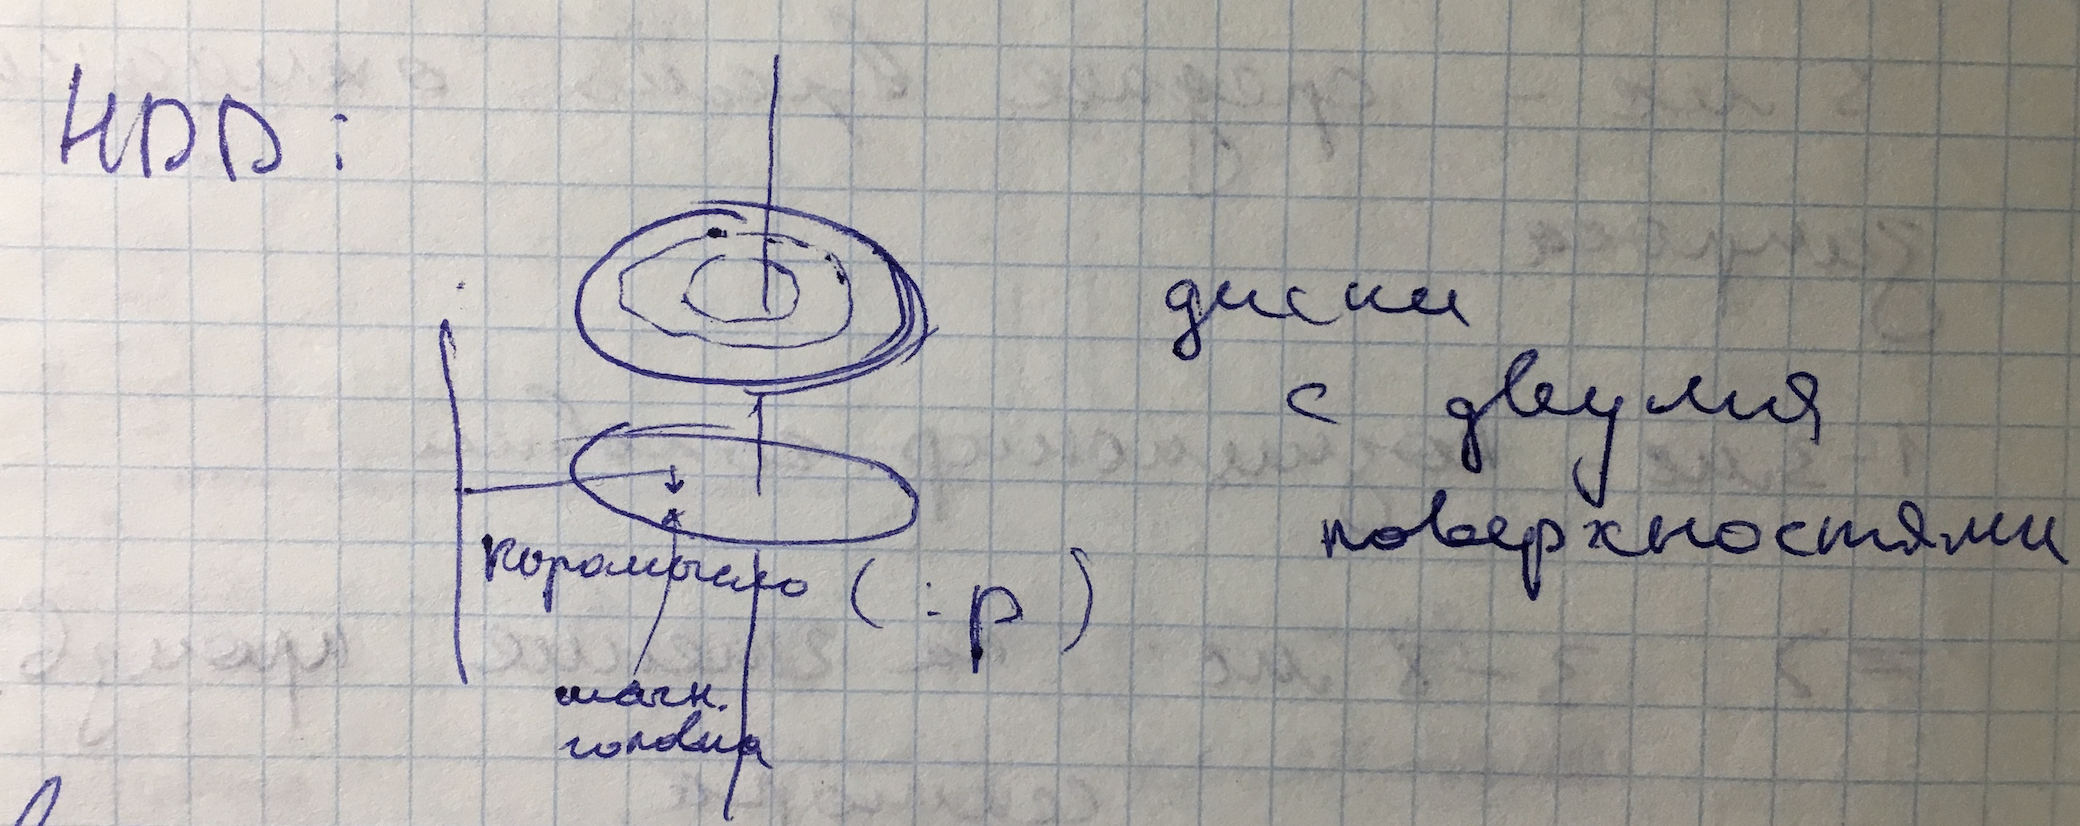 HDD:
диски
с двумя
поверхностями
коромысло (:р)
магн.
головка